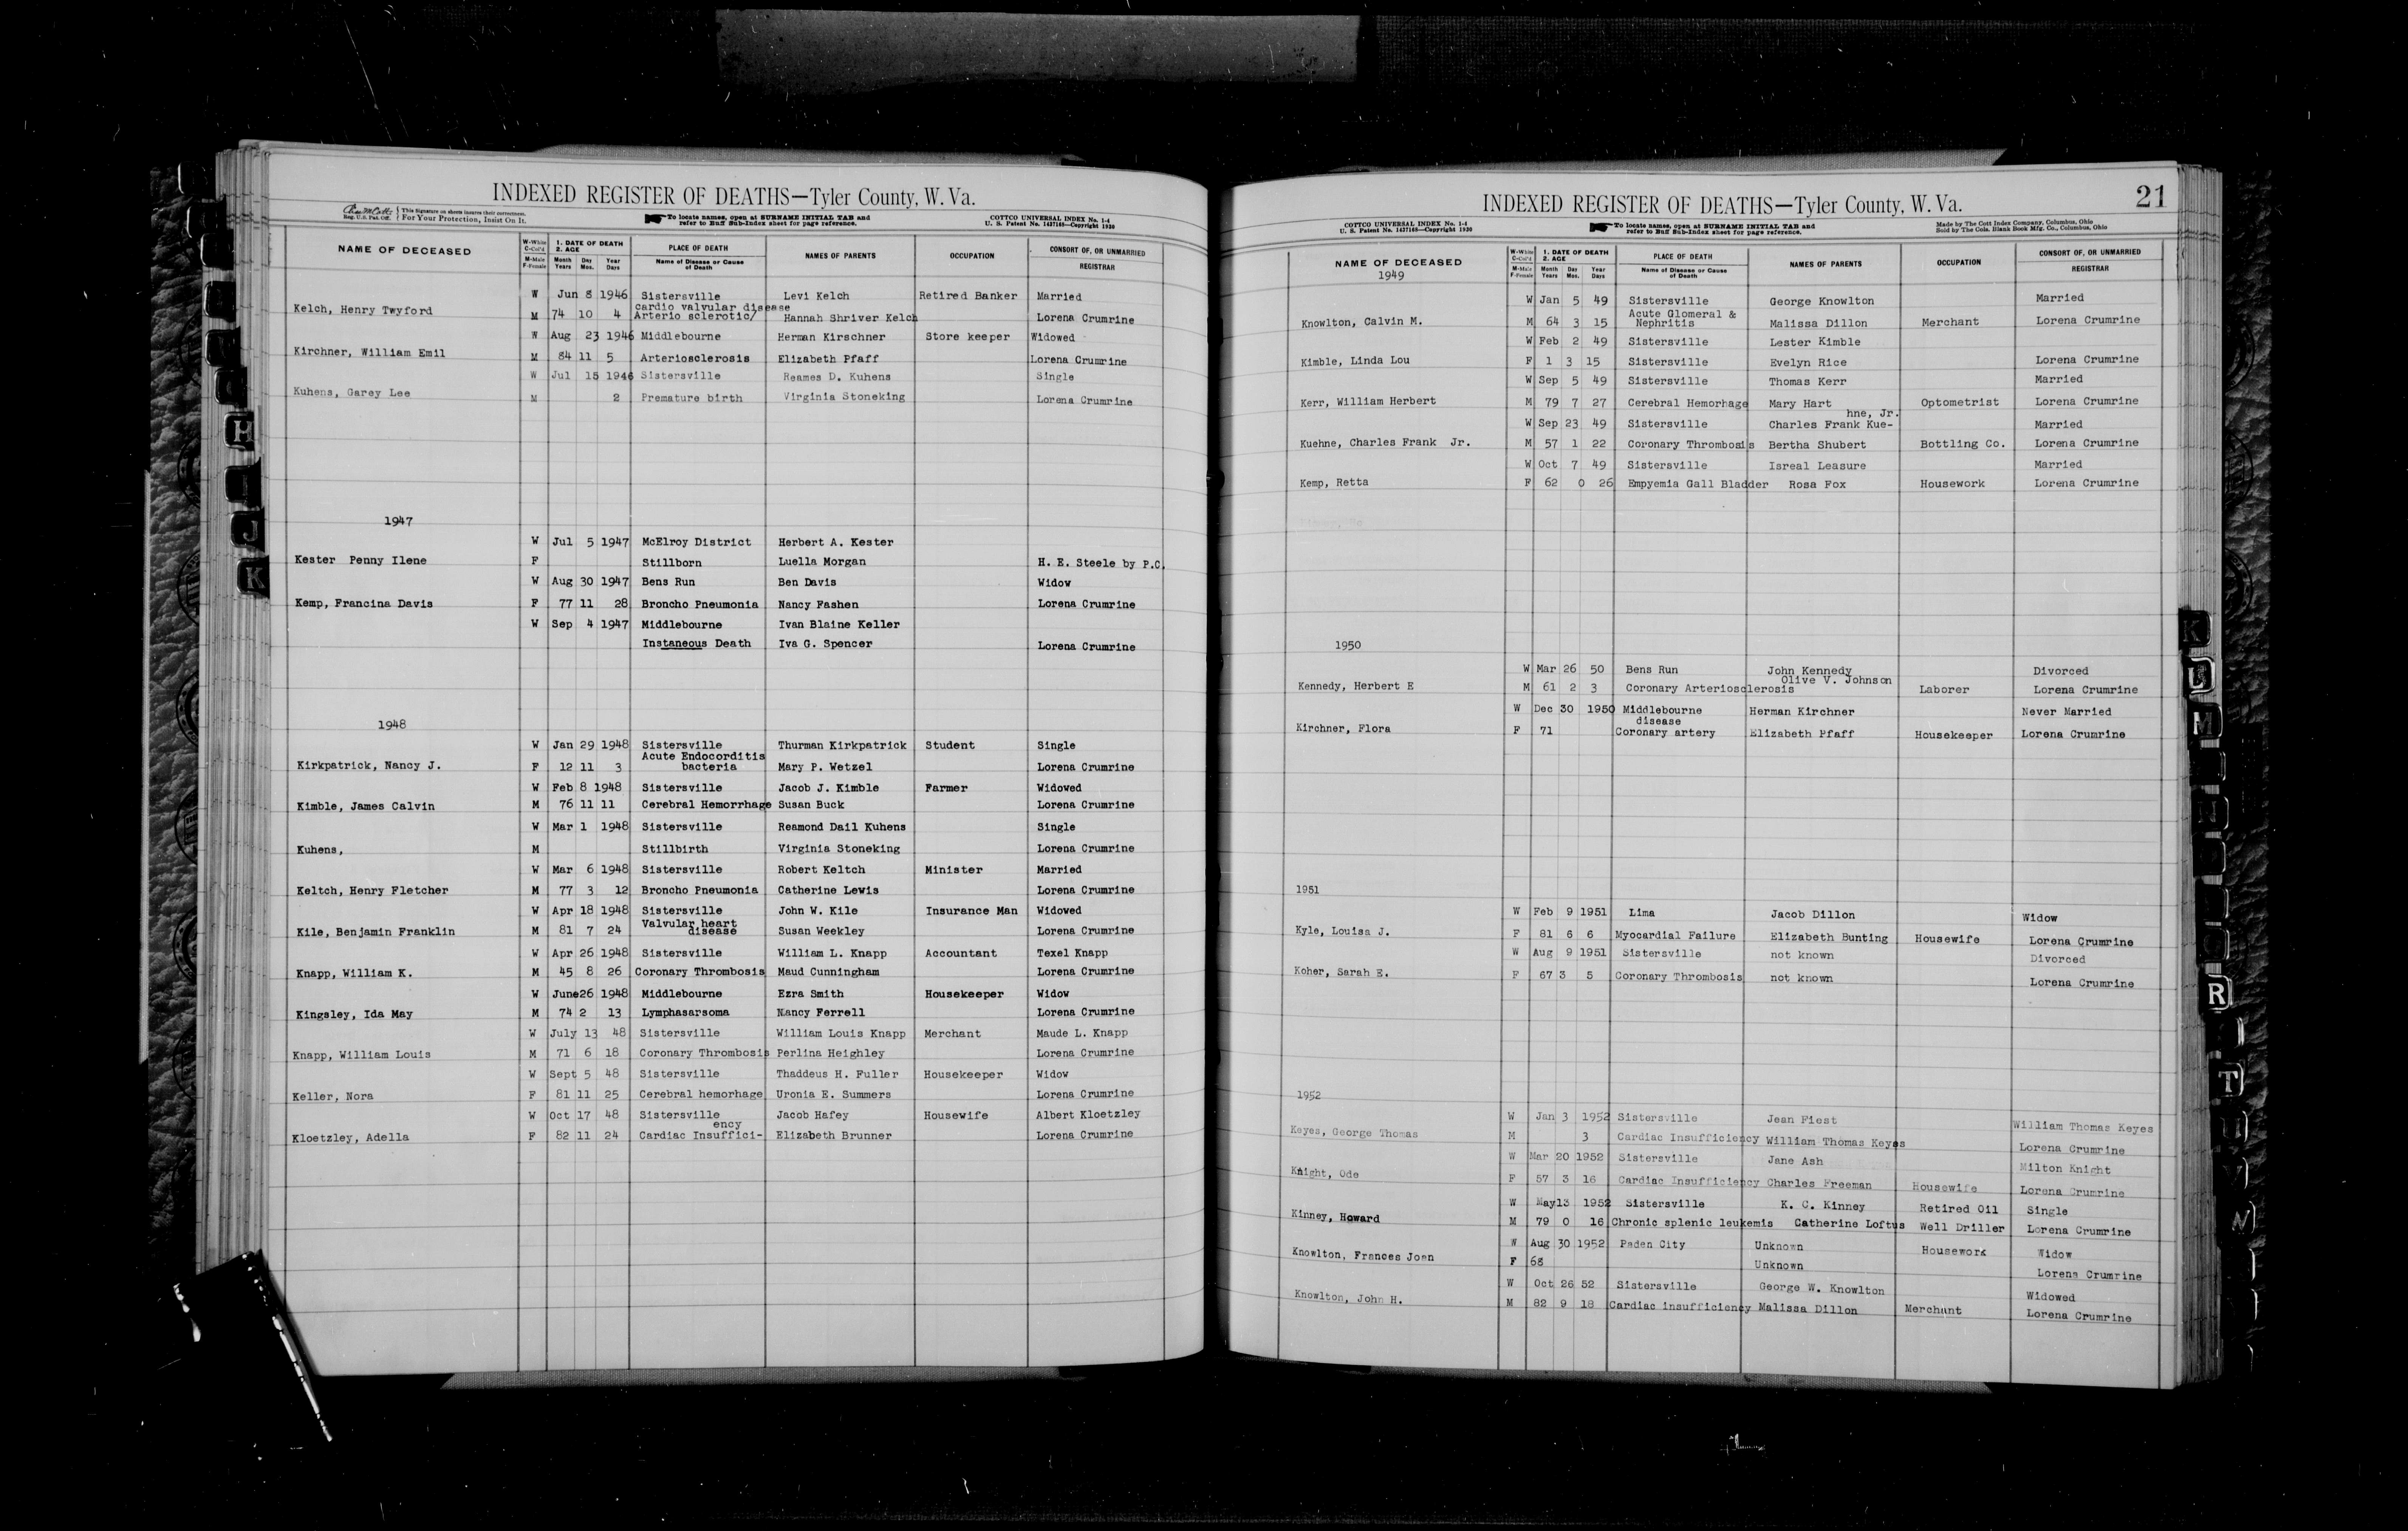 INDEXED REGISTER OF DEATHS—Tyler County, W. Va.
Reg. U.S. Pat. Off. { This Signature on sheets insures their correctness. For Your Protection, Insist On It.
To locate names, open at SURNAME INITIAL TAB and refer to Buff Sub-Index sheet for page reference.
COTTCO UNIVERSAL INDEX No. 1-4 U. S. Patent No. 1437169—Copyright 1930
NAME OF DECEASED W-White C-Col'd M-Male F-Female 1. DATE OF DEATH 2. AGE Month Years Day Mos. Year Days PLACE OF DEATH Name of Disease or Cause of Death NAMES OF PARENTS OCCUPATION CONSORT OF, OR UNMARRIED REGISTRAR
W Jun 8 1946 Sistersville Levi Kelch Retired Banker Married
cardio valvular disease
Kelch, Henry Twyford M 74 10 4 Arterio sclerotic/ Hannah Shriver Kelch Lorena Crumrine
W Aug 23 1946 Middlebourne Herman Kirschner Store keeper Widowed
Kirchner, William Emil M 84 11 5 Arteriosclerosis Elizabeth Pfaff Lorena Crumrine
W Jul 15 1946 Sistersville Reames D. Kuhens Single
Kuhens, Garey Lee M 2 Premature birth Virginia Stoneking Lorena Crumrine
1947
W Jul 5 1947 McElroy District Herbert A. Kester
Kester Penny Ilene F Stillborn Luella Morgan H. E. Steele by P.C.
W Aug 30 1947 Bens Run Ben Davis Widow
Kemp, Francina Davis F 77 11 28 Broncho Pneumonia Nancy Fashen Lorena Crumrine
W Sep 4 1947 Middlebourne Ivan Blaine Keller
Instaneous Death Iva G. Spencer Lorena Crumrine
1948
W Jan 29 1948 Sistersville Thurman Kirkpatrick Student Single
Acute Endocorditis
Kirkpatrick, Nancy J. F 12 11 3 bacteria Mary P. Wetzel Lorena Crumrine
W Feb 8 1948 Sistersville Jacob J. Kimble Farmer Widowed
Kimble, James Calvin M 76 11 11 Cerebral Hemorrhage Susan Buck Lorena Crumrine
W Mar 1 1948 Sistersville Reamond Dail Kuhens Single
Kuhens, M Stillbirth Virginia Stoneking Lorena Crumrine
W Mar 6 1948 Sistersville Robert Keltch Minister Married
Keltch, Henry Fletcher M 77 3 12 Broncho Pneumonia Catherine Lewis Lorena Crumrine
W Apr 18 1948 Sistersville John W. Kile Insurance Man Widowed
Valvular heart
Kile, Benjamin Franklin M 81 7 24 disease Susan Weekley Lorena Crumrine
W Apr 26 1948 Sistersville William L. Knapp Accountant Texel Knapp
Knapp, William K. M 45 8 26 Coronary Thrombosis Maud Cunningham Lorena Crumrine
W June26 1948 Middlebourne Ezra Smith Housekeeper Widow
Kingsley, Ida May M 74 2 13 Lymphasarsoma Nancy Ferrell Lorena Crumrine
W July 13 48 Sistersville William Louis Knapp Merchant Maude L. Knapp
Knapp, William Louis M 71 6 18 Coronary Thrombosis Perlina Heighley Lorena Crumrine
W Sept 5 48 Sistersville Thaddeus H. Fuller Housekeeper Widow
Keller, Nora F 81 11 25 Cerebral hemorhage Uronia E. Summers Lorena Crumrine
W Oct 17 48 Sistersville Jacob Hafey Housewife Albert Kloetzley
ency
Kloetzley, Adella F 82 11 24 Cardiac Insuffici- Elizabeth Brunner Lorena Crumrine
H
I
J
K
INDEXED REGISTER OF DEATHS—Tyler County, W. Va. 21
COTTCO UNIVERSAL INDEX No. 1-4 U. S. Patent No. 1437169—Copyright 1930
To locate names, open at SURNAME INITIAL TAB and refer to Buff Sub-Index sheet for page reference.
Made by The Cott Index Company, Columbus, Ohio Sold by The Cols. Blank Book Mfg. Co., Columbus, Ohio
NAME OF DECEASED W-White C-Col'd M-Male F-Female 1. DATE OF DEATH 2. AGE Month Years Day Mos. Year Days PLACE OF DEATH Name of Disease or Cause of Death NAMES OF PARENTS OCCUPATION CONSORT OF, OR UNMARRIED REGISTRAR
1949
W Jan 5 49 Sistersville George Knowlton Married
Acute Glomeral &
Knowlton, Calvin M. M 64 3 15 Nephritis Malissa Dillon Merchant Lorena Crumrine
W Feb 2 49 Sistersville Lester Kimble
Kimble, Linda Lou F 1 3 15 Sistersville Evelyn Rice Lorena Crumrine
W Sep 5 49 Sistersville Thomas Kerr Married
Kerr, William Herbert M 79 7 27 Cerebral Hemorhage Mary Hart Optometrist Lorena Crumrine
hne, Jr.
W Sep 23 49 Sistersville Charles Frank Kue- Married
Kuehne, Charles Frank Jr. M 57 1 22 Coronary Thrombosis Bertha Shubert Bottling Co. Lorena Crumrine
W Oct 7 49 Sistersville Isreal Leasure Married
Kemp, Retta F 62 0 26 Empyemia Gall Bladder Rosa Fox Housework Lorena Crumrine
1950
W Mar 26 50 Bens Run John Kennedy Divorced
Olive V. Johnson
Kennedy, Herbert E M 61 2 3 Coronary Arteriosclerosis Laborer Lorena Crumrine
W Dec 30 1950 Middlebourne Herman Kirchner Never Married
disease
Kirchner, Flora F 71 Coronary artery Elizabeth Pfaff Housekeeper Lorena Crumrine
1951
W Feb 9 1951 Lima Jacob Dillon Widow
Kyle, Louisa J. F 81 6 6 Myocardial Failure Elizabeth Bunting Housewife Lorena Crumrine
W Aug 9 1951 Sistersville not known Divorced
Koher, Sarah E. F 67 3 5 Coronary Thrombosis not known Lorena Crumrine
1952
W Jan 3 1952 Sistersville Jean Fiest William Thomas Keyes
Keyes, George Thomas M 3 Cardiac Insufficiency William Thomas Keyes Lorena Crumrine
W Mar 20 1952 Sistersville Jane Ash Milton Knight
Knight, Ode F 57 3 16 Cardiac Insufficiency Charles Freeman Housewife Lorena Crumrine
W May13 1952 Sistersville K. C. Kinney Retired Oil Single
Kinney, Howard M 79 0 16 Chronic splenic leukemis Catherine Loftus Well Driller Lorena Crumrine
W Aug 30 1952 Paden City Unknown Housework Widow
Knowlton, Frances Joan F 68 Unknown Lorena Crumrine
W Oct 26 52 Sistersville George W. Knowlton Widowed
Knowlton, John H. M 82 9 18 Cardiac insufficiency Malissa Dillon Merchant Lorena Crumrine
K
L
M
R
T